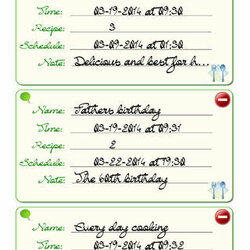 Time: 03-19-2014 at 09:30
Recipe: 3
Schedule: 03-09-2014 at 01:30
Note: Delicious and best for h...
Name: Fathers birthday
Time: 03-19-2014 at 09:31
Recipe: 2
Schedule: 03-22-2014 at 19:30
Note: The 60th birthday
Name: Every day cooking
Time: 03-19-2014 at 09:32